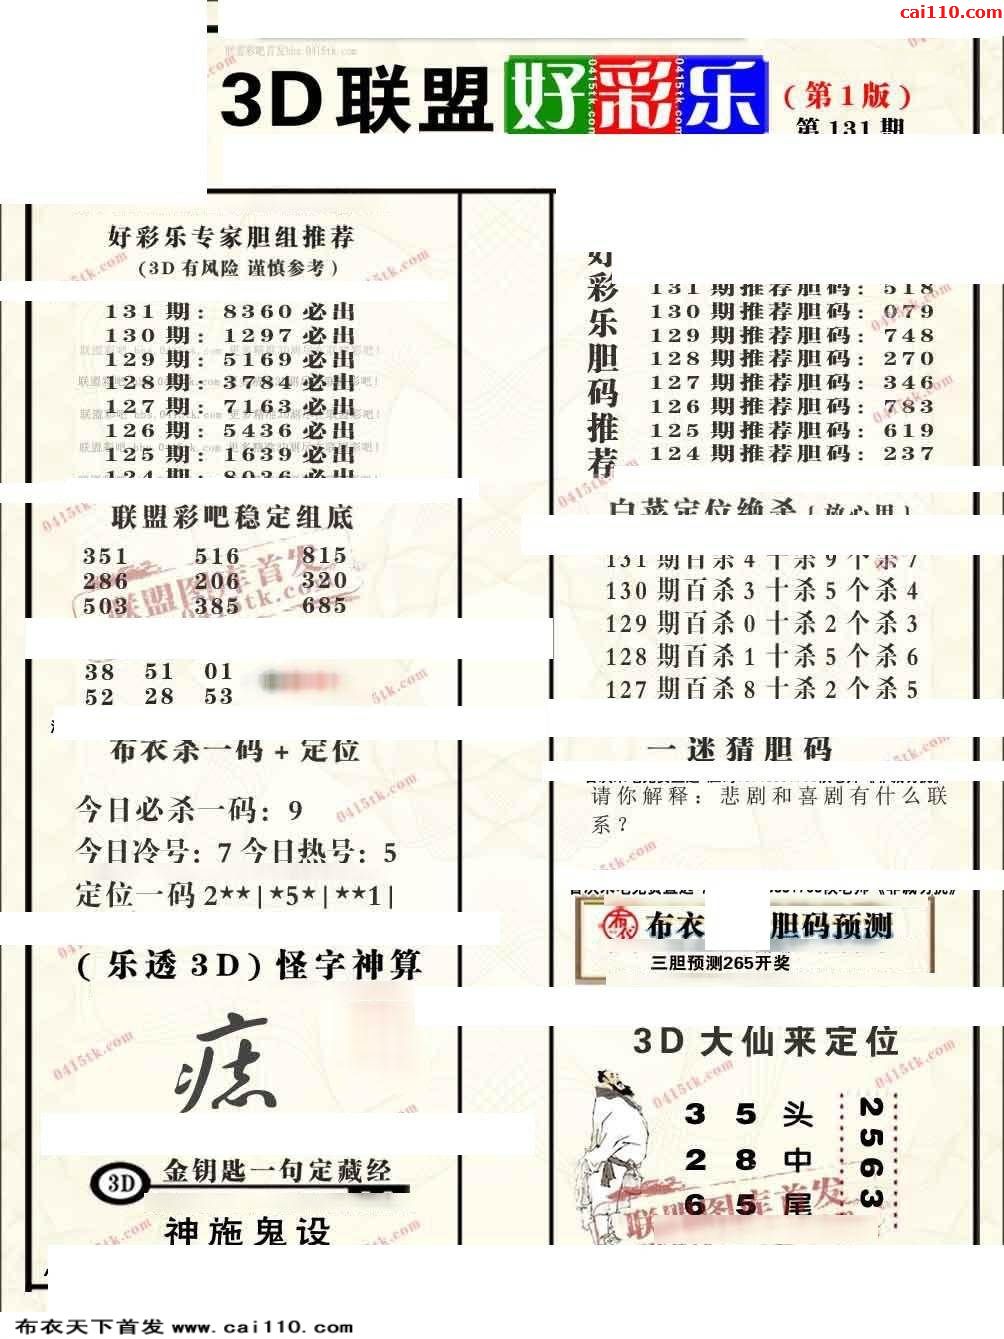 cai110.com
3D联盟好彩乐
(第1版)
第131期
好彩乐专家胆组推荐
(3D有风险 谨慎参考)
131期: 8360必出
130期: 1297必出
129期: 5169必出
128期: 3784必出
127期: 7163必出
126期: 5436必出
125期: 1639必出
124期: 8036必出
联盟彩吧稳定组底
351 516 815
286 206 320
503 385 685
38 51 01
52 28 53
布衣杀一码+定位
今日必杀一码: 9
今日冷号: 7 今日热号: 5
定位一码 2**|*5*|**1|
(乐透3D)怪字神算
痣
3D
金钥匙一句定藏经
神施鬼设
好彩乐胆码推荐
131期推荐胆码: 518
130期推荐胆码: 079
129期推荐胆码: 748
128期推荐胆码: 270
127期推荐胆码: 346
126期推荐胆码: 783
125期推荐胆码: 619
124期推荐胆码: 237
白菜定位绝杀(放心用)
131期百杀4十杀9个杀7
130期百杀3十杀5个杀4
129期百杀0十杀2个杀3
128期百杀1十杀5个杀6
127期百杀8十杀2个杀5
一迷猜胆码
请你解释: 悲剧和喜剧有什么联
系?
布衣 胆码预测
三胆预测265开奖
3D大仙来定位
3 5 头
2 8 中
6 5 尾
2563
联盟图库首发
0415tk.com
布衣天下首发 www.cai110.com